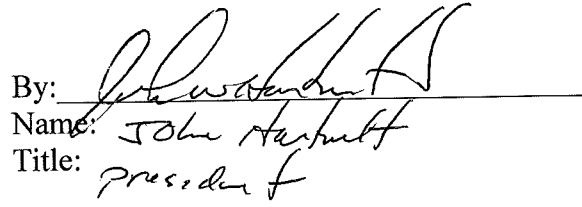 By:
Name: John Hartnett
Title:
president